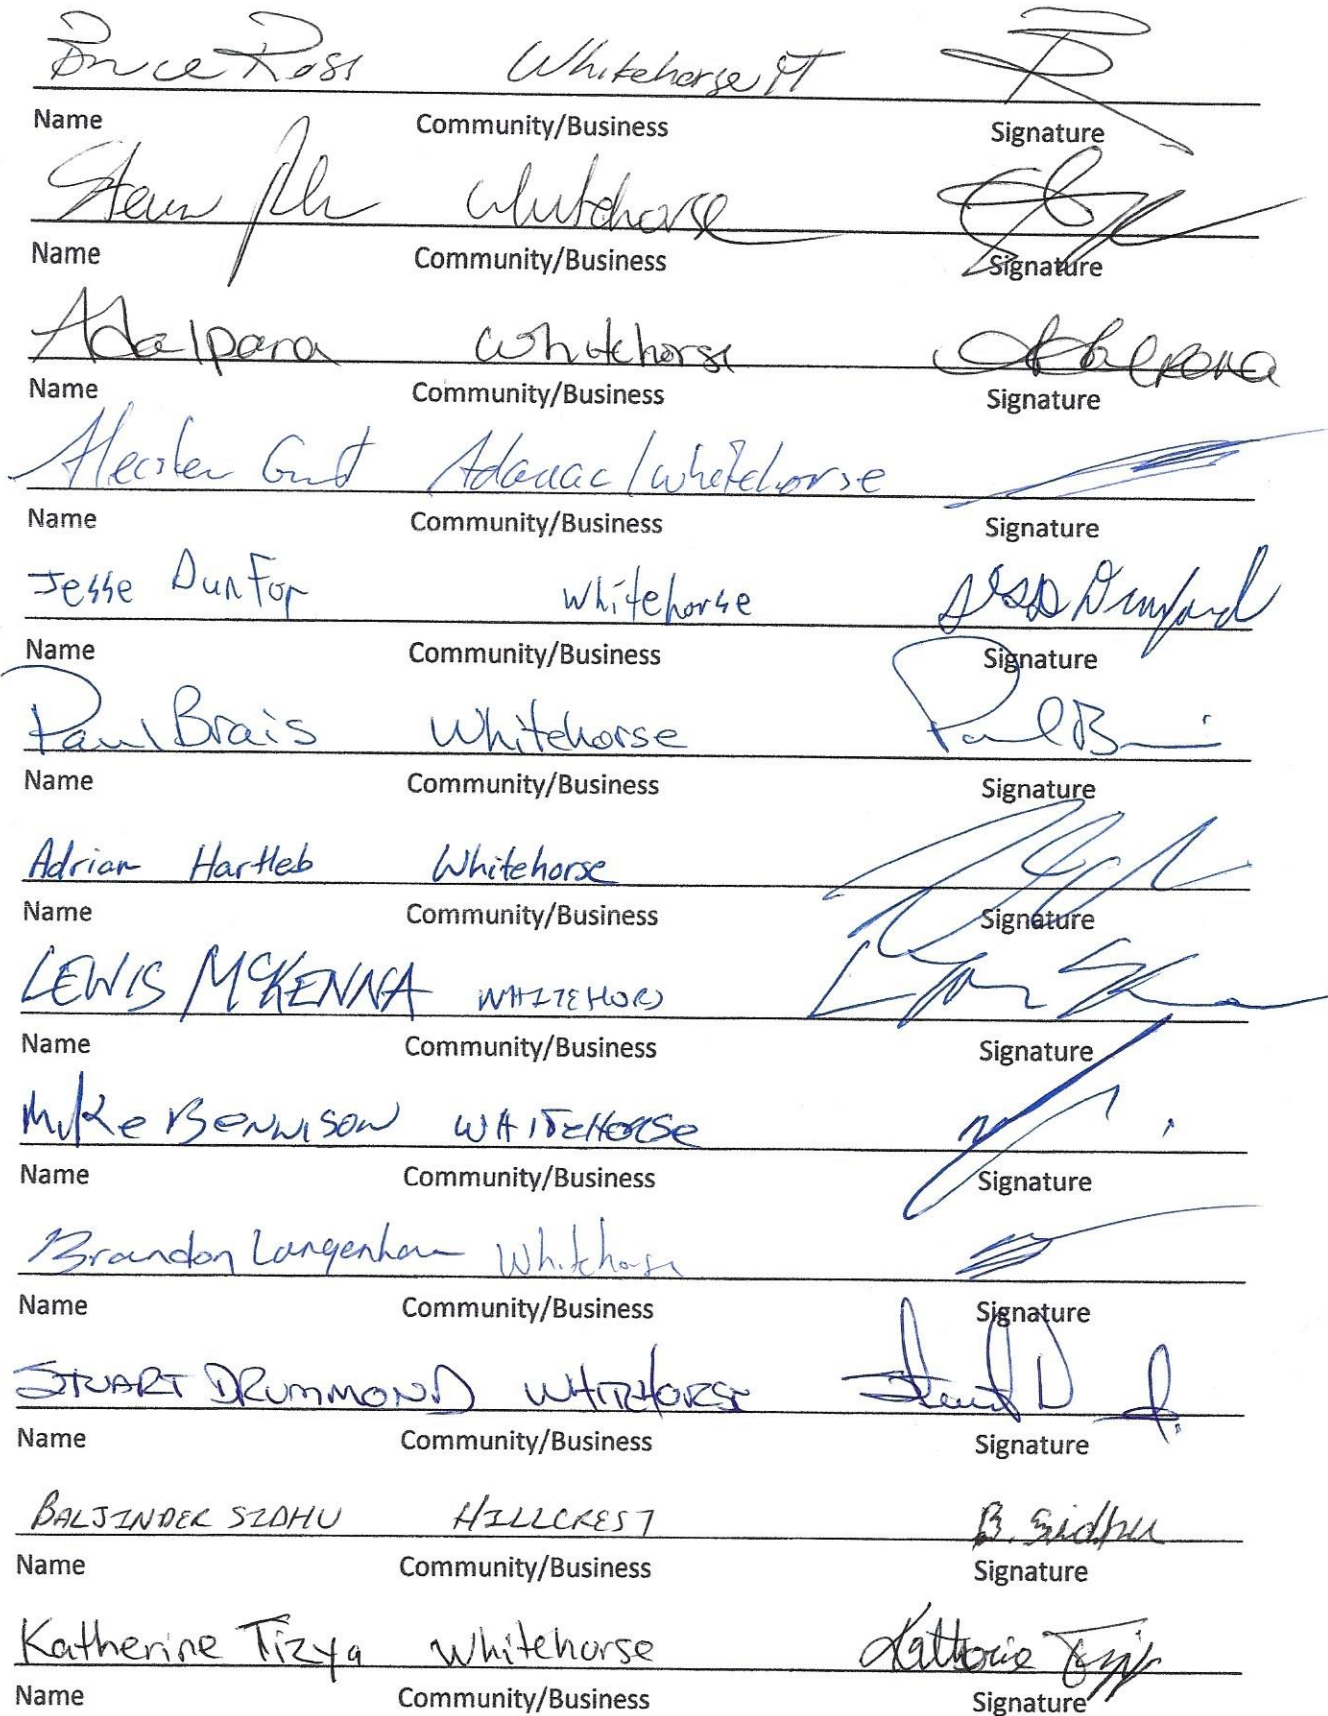 Bruce Ross Whitehorse YT
Name Community/Business Signature
Whitehorse
Name Community/Business Signature
Adalpara Whitehorse Adalpara
Name Community/Business Signature
Whitehorse
Name Community/Business Signature
Jesse Whitehorse Dunford
Name Community/Business Signature
Paul Brais Whitehorse Paul
Name Community/Business Signature
Adrian Hartleb Whitehorse
Name Community/Business Signature
LEWIS MCKENNA WHITEHORS
Name Community/Business Signature
Mike BENNISON WHITEHORSE
Name Community/Business Signature
Brandon Whitehorse
Name Community/Business Signature
STUART DRUMMOND WHITEHORSE Stuart D
Name Community/Business Signature
BALJINDER SIDHU HILLCREST B. Sidhu
Name Community/Business Signature
Katherine Tizya Whitehorse Katherine
Name Community/Business Signature